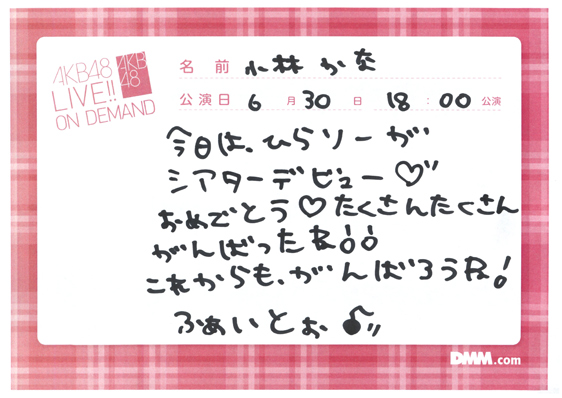 AKB48
LIVE!!
ON DEMAND
AKB
48
名前 小林かな
公演日 6月30日 18:00公演
今日は、ひらりーが
シアターデビュー♡"
おめでとう♡たくさんたくさん
がんばったね!!
これからも、がんばろうね!
ふぁいとぉ♪〃
DMM.com